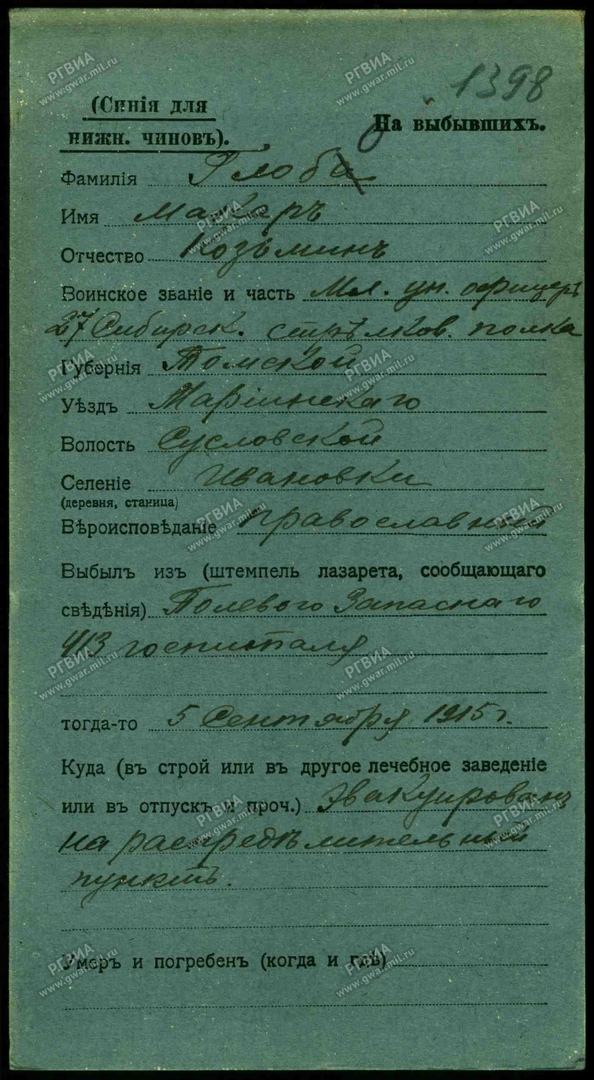 1398
(Синія для
нижн. чиновъ).
На выбывшихъ.
Фамилія Глоба
Имя Макаръ
Отчество Козьминъ
Воинское званіе и часть Мл. ун. офицеръ
27 Сибирск. стрѣлков. полка
Губернія Томской
Уѣздъ Маріинскаго
Волость Сусловской
Селеніе Ивановки
(деревня, станица)
Вѣроисповѣданіе православный
Выбылъ изъ (штемпель лазарета, сообщающаго
свѣдѣнія) Полевого Запаснаго
413 госпиталя
тогда-то 5 Сентября 1915 г.
Куда (въ строй или въ другое лечебное заведеніе
или въ отпускъ и проч.) Эвакуированъ
на распредѣлительный
пунктъ.
Умеръ и погребенъ (когда и гдѣ)
РГВИА
www.gwar.mil.ru